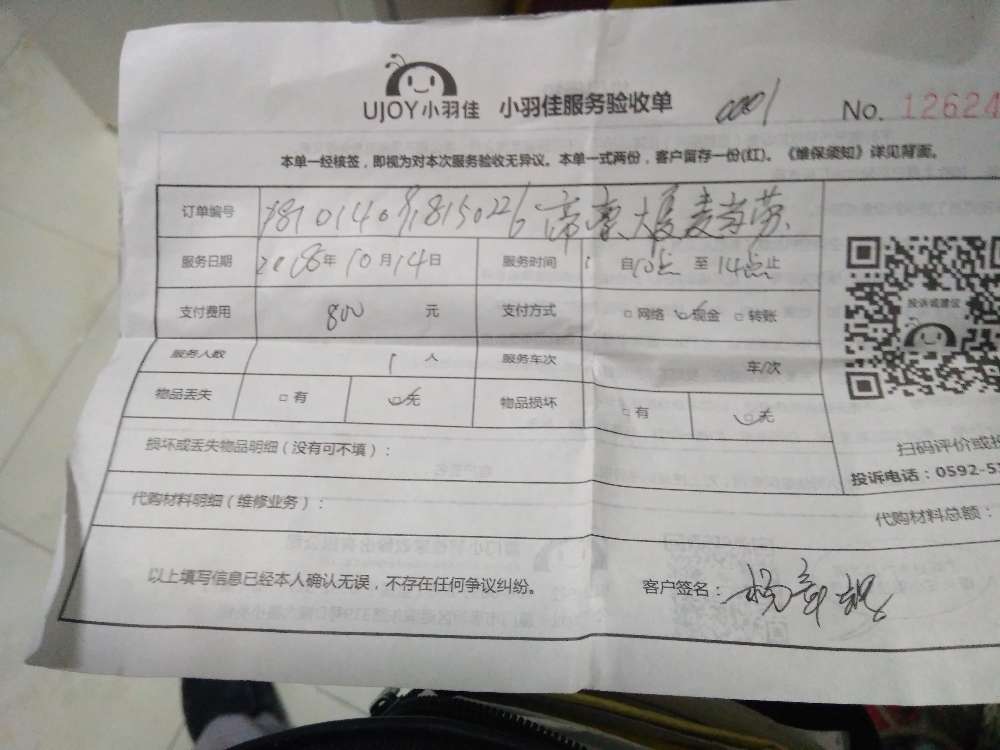 UJOY小羽佳 小羽佳服务验收单 0001 No. 12624
本单一经核签，即视为对本次服务验收无异议。本单一式两份，客户留存一份(红)。《维保须知》详见背面。
订单编号 大厦麦当劳
服务日期 2018年10月14日 服务时间 自10点 至 14点止
支付费用 800 元 支付方式 □网络 □现金 □转账
服务人数 1 人 服务车次 车/次
物品丢失 □有 □无 物品损坏 □有 □无
投诉或建议
损坏或丢失物品明细（没有可不填）：
扫码评价或投
投诉电话：0592-5
代购材料明细（维修业务）：
代购材料总额：
以上填写信息已经本人确认无误，不存在任何争议纠纷。 客户签名：